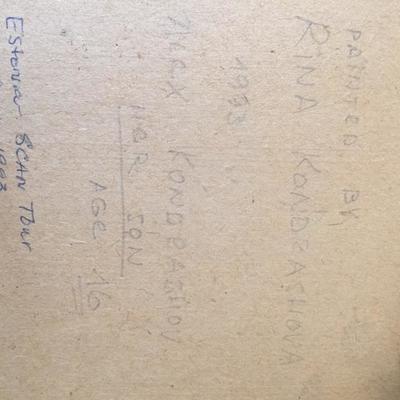 PAINTED BY
RINA KONDRASHOVA
1993
ALEX KONDRASHOV
HER SON
AGE 16
Estonia SCAN Tour
1993